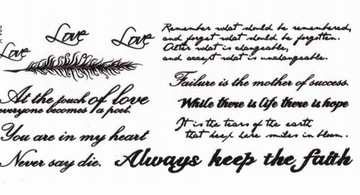 Love Love Love
At the touch of love
everyone becomes a poet.
You are in my heart
Never say die.
Remember what should be remembered,
and forget what should be forgotten.
Alter what is changeable,
and accept what is unchangeable.
Failure is the mother of success.
While there is life there is hope
It is the tears of the earth
that keep here smiles in bloom.
Always keep the faith